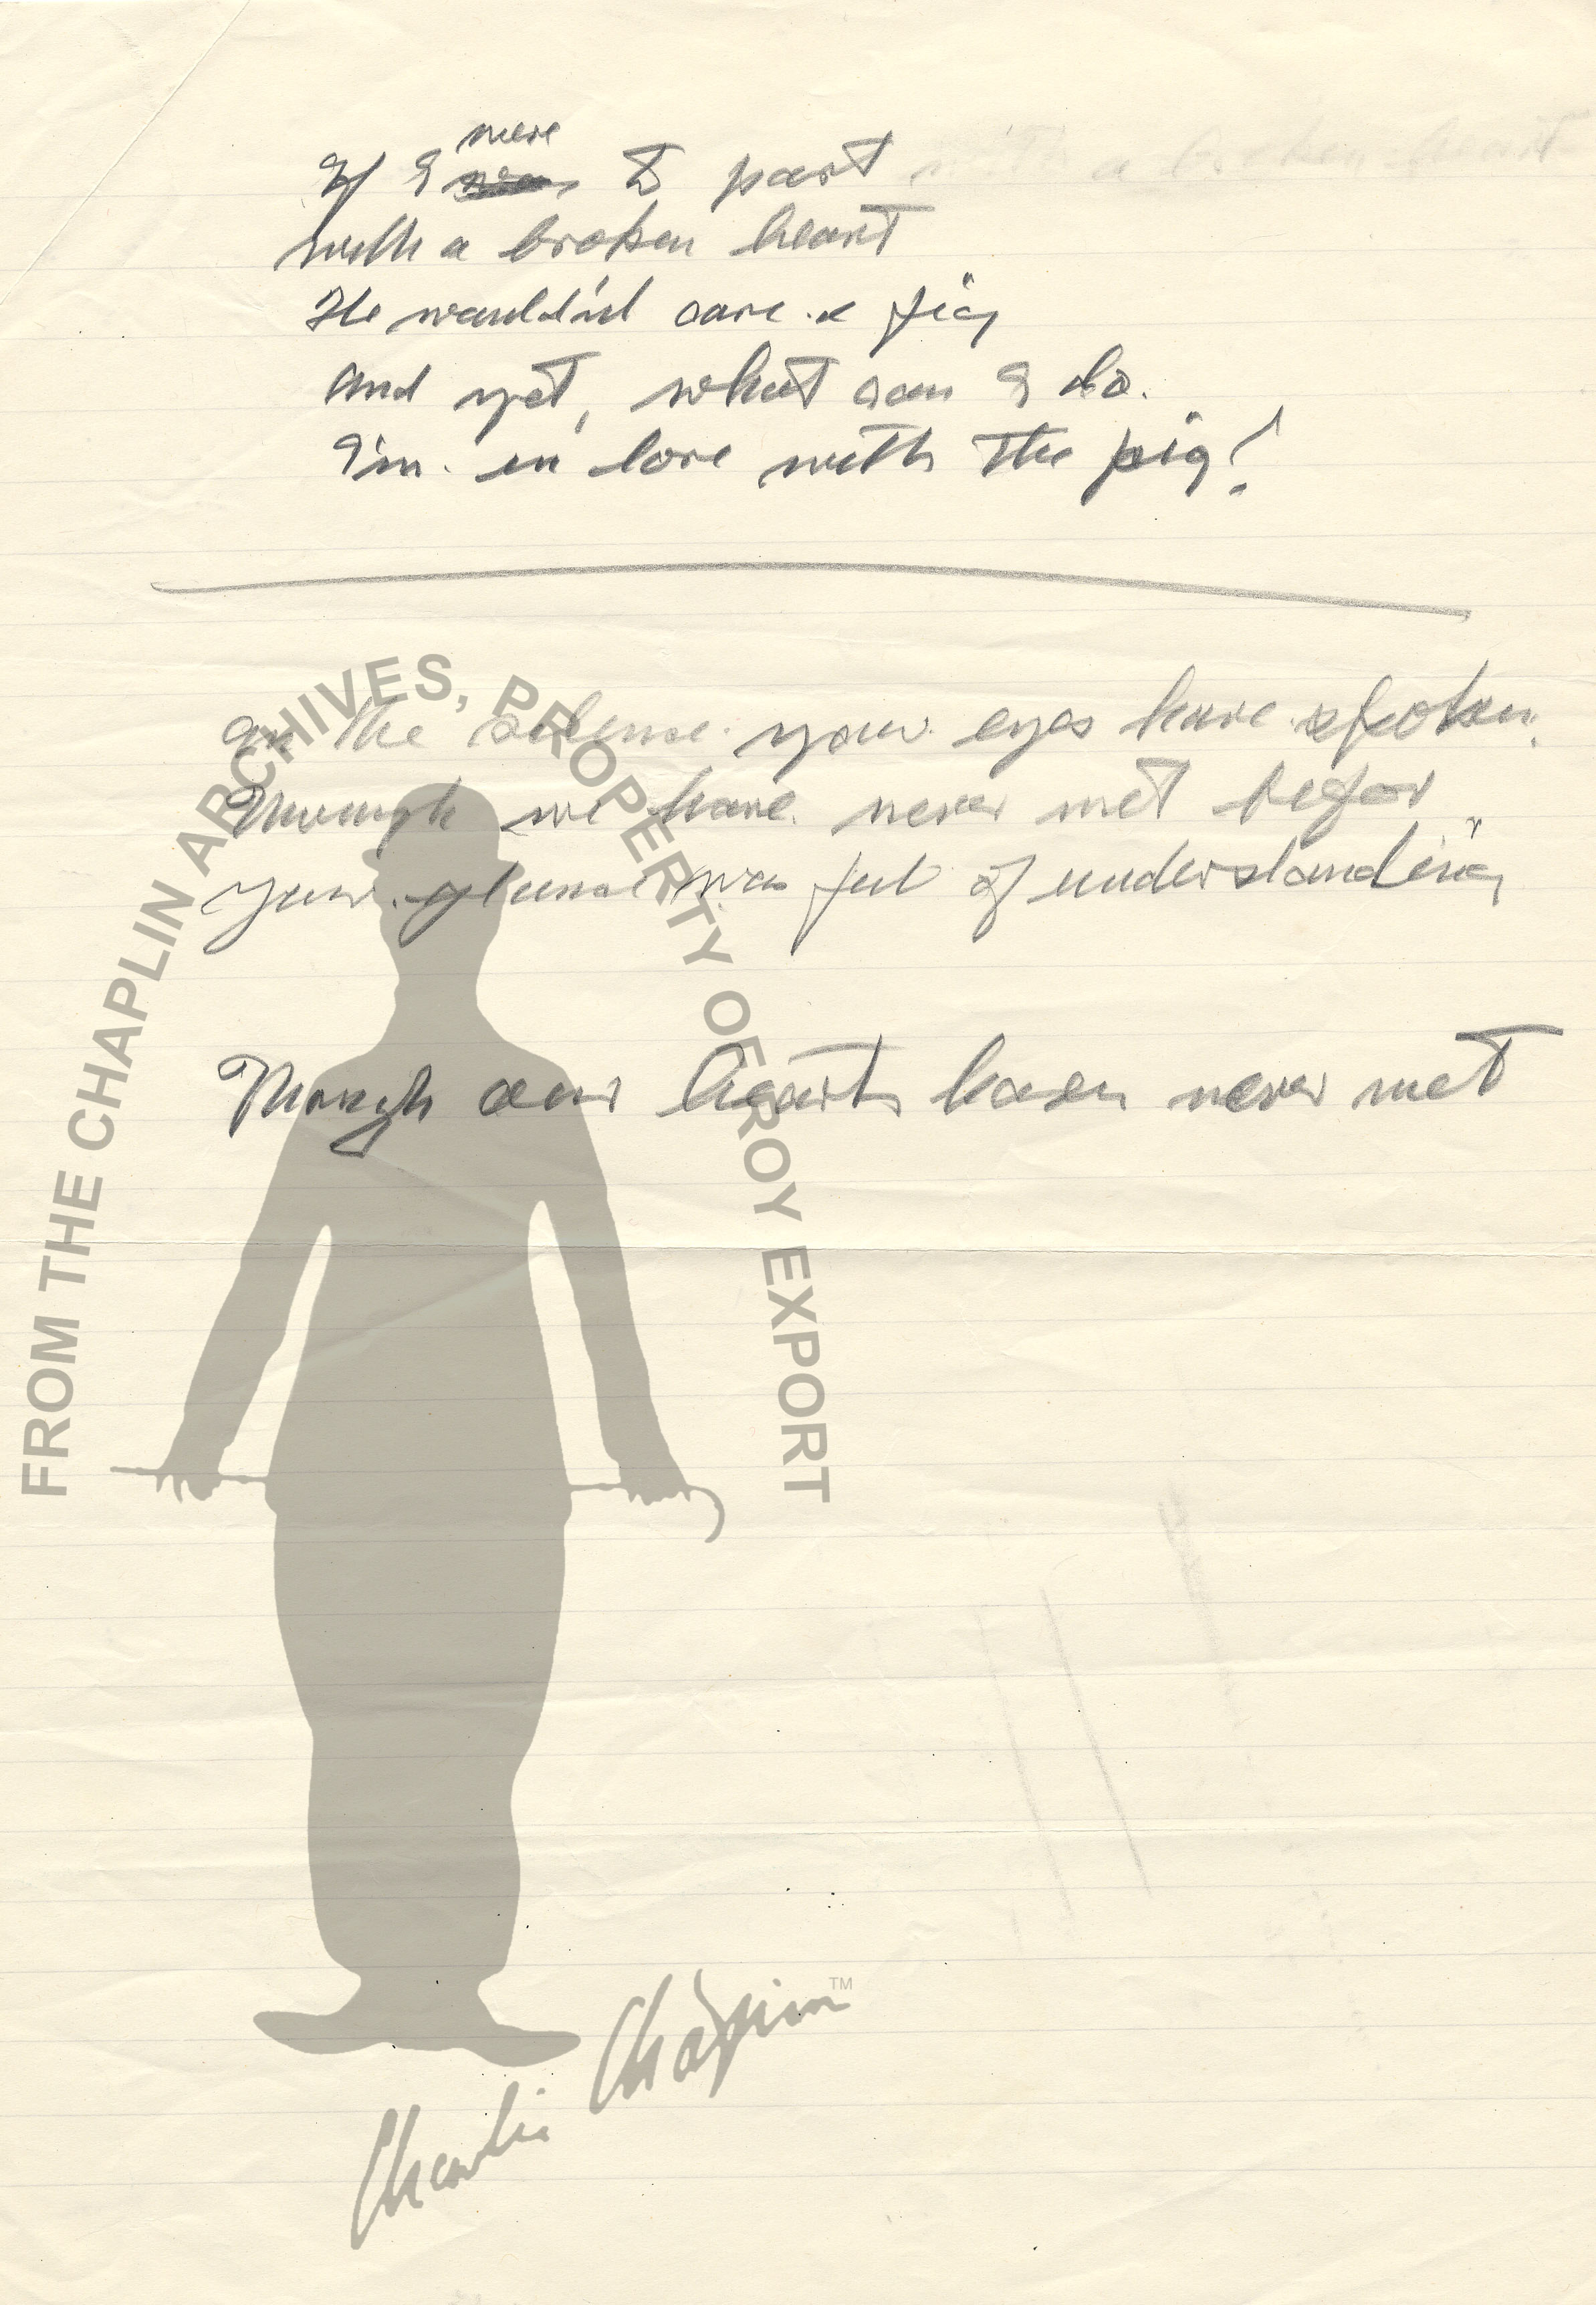 If I were to part with a broken heart
with a broken heart
He wouldn'd care a fig
and yet, what can I do.
I'm in love with the pig!
In the silense your eyes have spoken,
Though we have never met befor
your glanse was full of understanding
Though our hearts haven never met
FROM THE CHAPLIN ARCHIVES, PROPERTY OF ROY EXPORT
Charlie Chaplin TM